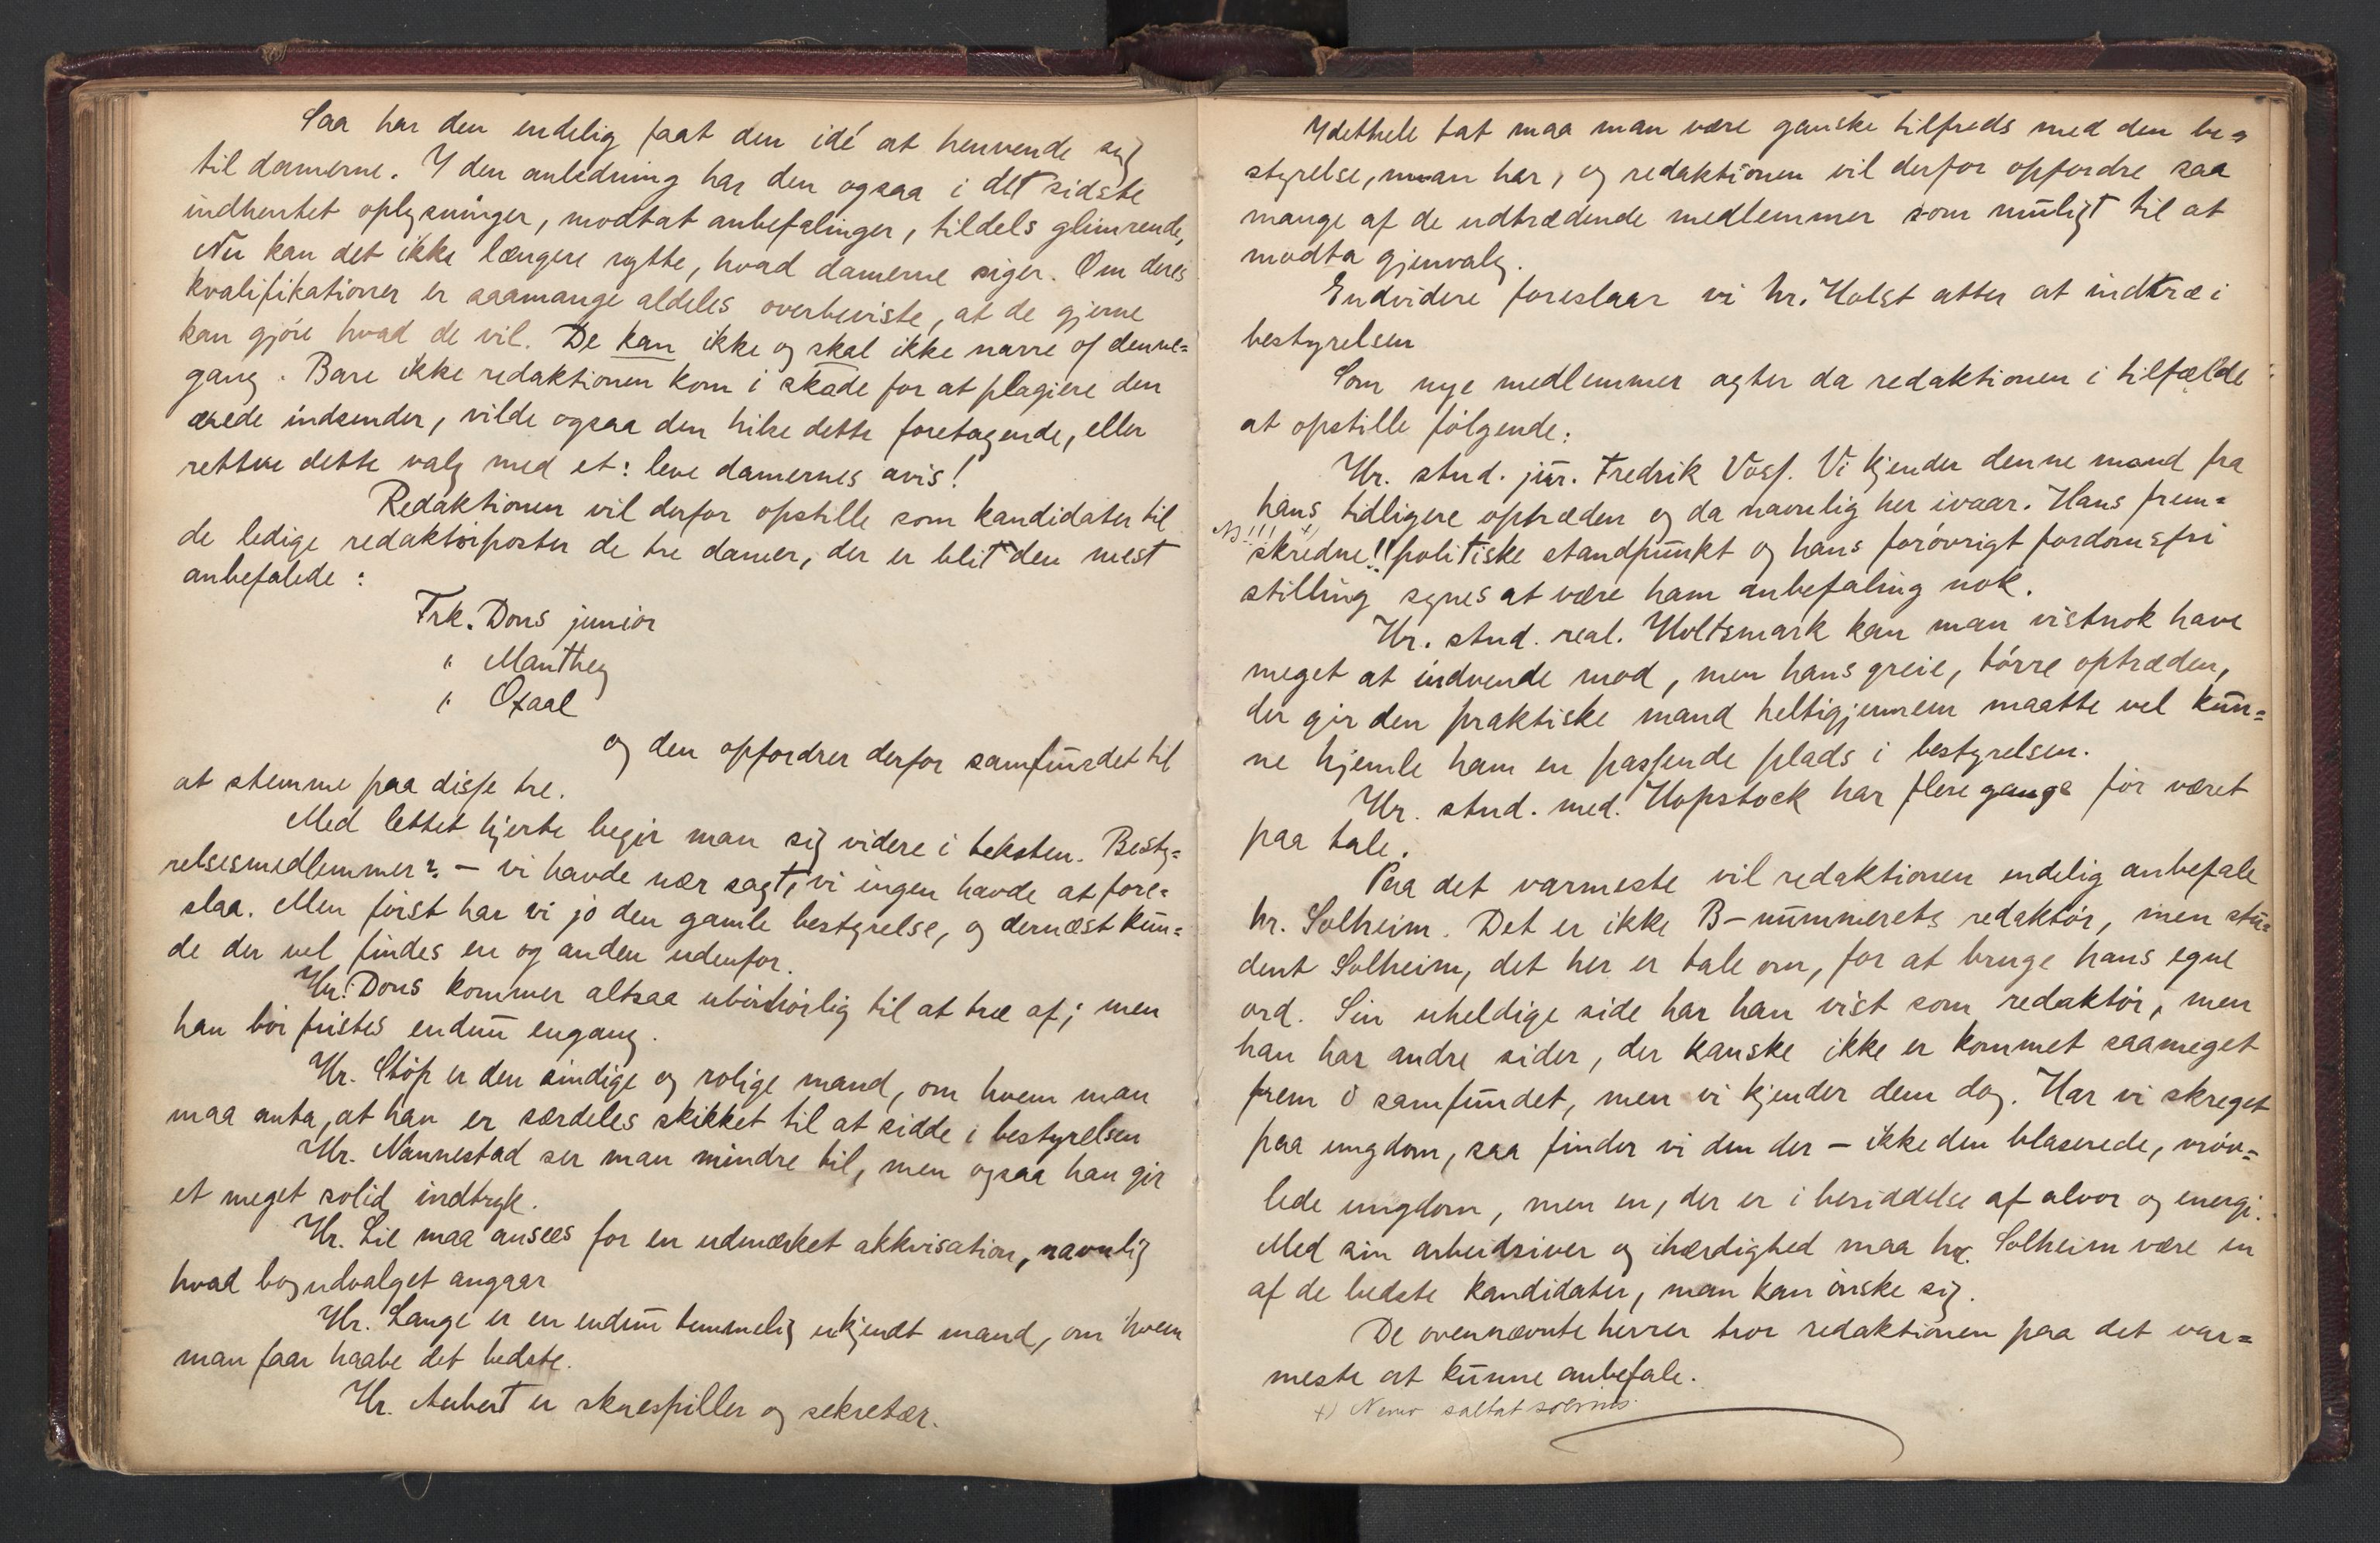 Saa har den endelig faat den idé at henvende sig
til damerne. I den anledning har den ogsaa i det sidste
indhentet oplysninger, modtat anbefalinger, tildels glimrende,
Nu kan det ikke længere nytte, hvad damerne siger. Om deres
kvalifikationer er saamange aldeles overbeviste, at de gjerne
kan gjøre hvad de vil. De kan ikke og skal ikke narre os denne=
gang. Bare ikke redaktionen kom i skade for at plagiere den
ærede indsender, vilde ogsaa den hilse dette foretagende, eller
rettere dette valg med et: leve damernes avis!
Redaktionen vil derfor opstille som kandidater til
de ledige redaktørposter de tre damer, der er blit den mest
anbefalede:
Frk. Dons junior
" Manthey
" Oxaal
og den opfordrer derfor samfundet til
at stemme paa disse tre.
Med lettet hjerte begir man sig videre i teksten. Besty=
relsesmedlemmer? – vi havde nær sagt, vi ingen havde at fore=
slaa. Men først har vi jo den gamle bestyrelse, og dernæst kun=
de der vel findes en og anden udenfor.
Hr. Dons kommer altsaa ubønhørlig til at træ af; men
han bør fristes endnu engang.
Hr. Støp er den sindige og rolige mand, om hvem man
maa anta, at han er særdeles skikket til at sidde i bestyrelsen
Hr. Nannestad ser man mindre til, men ogsaa han gir
et meget solid indtryk.
Hr. Lie maa ansees for en udmærket akkvisation, navnlig
hvad bogudvalget angaar
Hr. Lange er en endnu temmelig ukjendt mand, om hvem
man faar haabe det bedste.
Hr. Aubert er skuespiller og sekretær.
Idethele tat maa man være ganske tilfreds med den be=
styrelse, man har, og redaktionen vil derfor opfordre saa
mange af de udtrædende medlemmer som muligt til at
modta gjenvalg.
Endvidere foreslaar vi hr. Holst atter at indtræ i
bestyrelsen
Som nye medlemmer agter da redaktionen i tilfælde
at opstille følgende:
Hr. stud. jur. Fredrik Voss. Vi kjender denne mand fra
hans tidligere optræden og da navnlig her ivaar. Hans frem=
NB!!! +)
skredne!! politiske standpunkt og hans forøvrigt fordomsfri
stilling synes at være ham anbefaling nok.
Hr. stud. real. Holtsmark kan man vistnok have
meget at indvende mod, men hans greie, tørre optræden,
der gir den praktiske mand heltigjennem maatte vel kun=
ne hjemle ham en passende plads i bestyrelsen.
Hr. stud. med. Hopstock har flere gange før været
paa tale.
Paa det varmeste vil redaktionen endelig anbefale
hr. Solheim. Det er ikke B–nummerets redaktør, men stu=
dent Solheim, det her er tale om, for at bruge hans egne
ord. Sin uheldige side har han vist som redaktør, men
han har andre sider, der kanske ikke er kommet saameget
frem i samfundet, men vi kjender dem dog. Har vi skreget
paa ungdom, saa finder vi den der – ikke den blaserede, vrøv=
lede ungdom, men en, der er i besiddelse af alvor og energi.
Med sin arbeidsiver og ihærdighed maa hr. Solheim være en
af de bedste kandidater, man kan ønske sig.
De ovennævnte herrer tror redaktionen paa det var=
meste at kunne anbefale.
+) Nemo saltat sobrius.